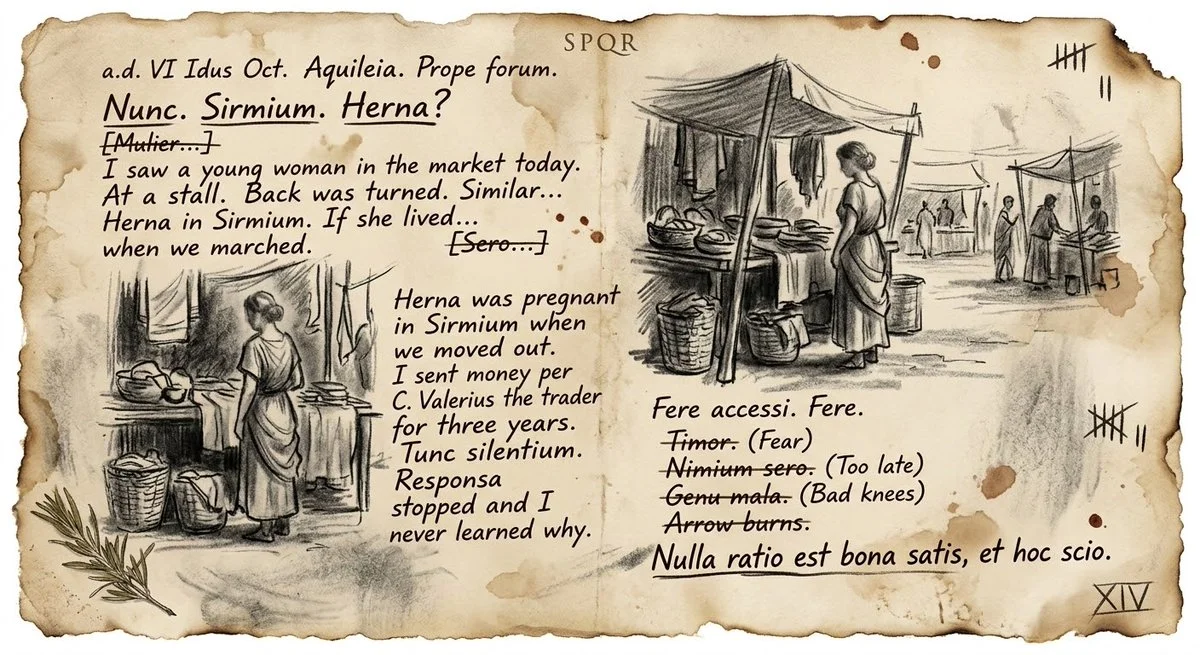 SPQR
a.d. VI Idus Oct. Aquileia. Prope forum.
Nunc. Sirmium. Herna?
[Mulier...]
I saw a young woman in the market today.
At a stall. Back was turned. Similar...
Herna in Sirmium. If she lived...
when we marched. [Sero...]
Herna was pregnant
in Sirmium when
we moved out.
I sent money per
C. Valerius the trader
for three years.
Tunc silentium.
Responsa
stopped and I
never learned why.
Fere accessi. Fere.
Timor. (Fear)
Nimium sero. (Too late)
Genu mala. (Bad knees)
Arrow burns.
Nulla ratio est bona satis, et hoc scio.
XIV